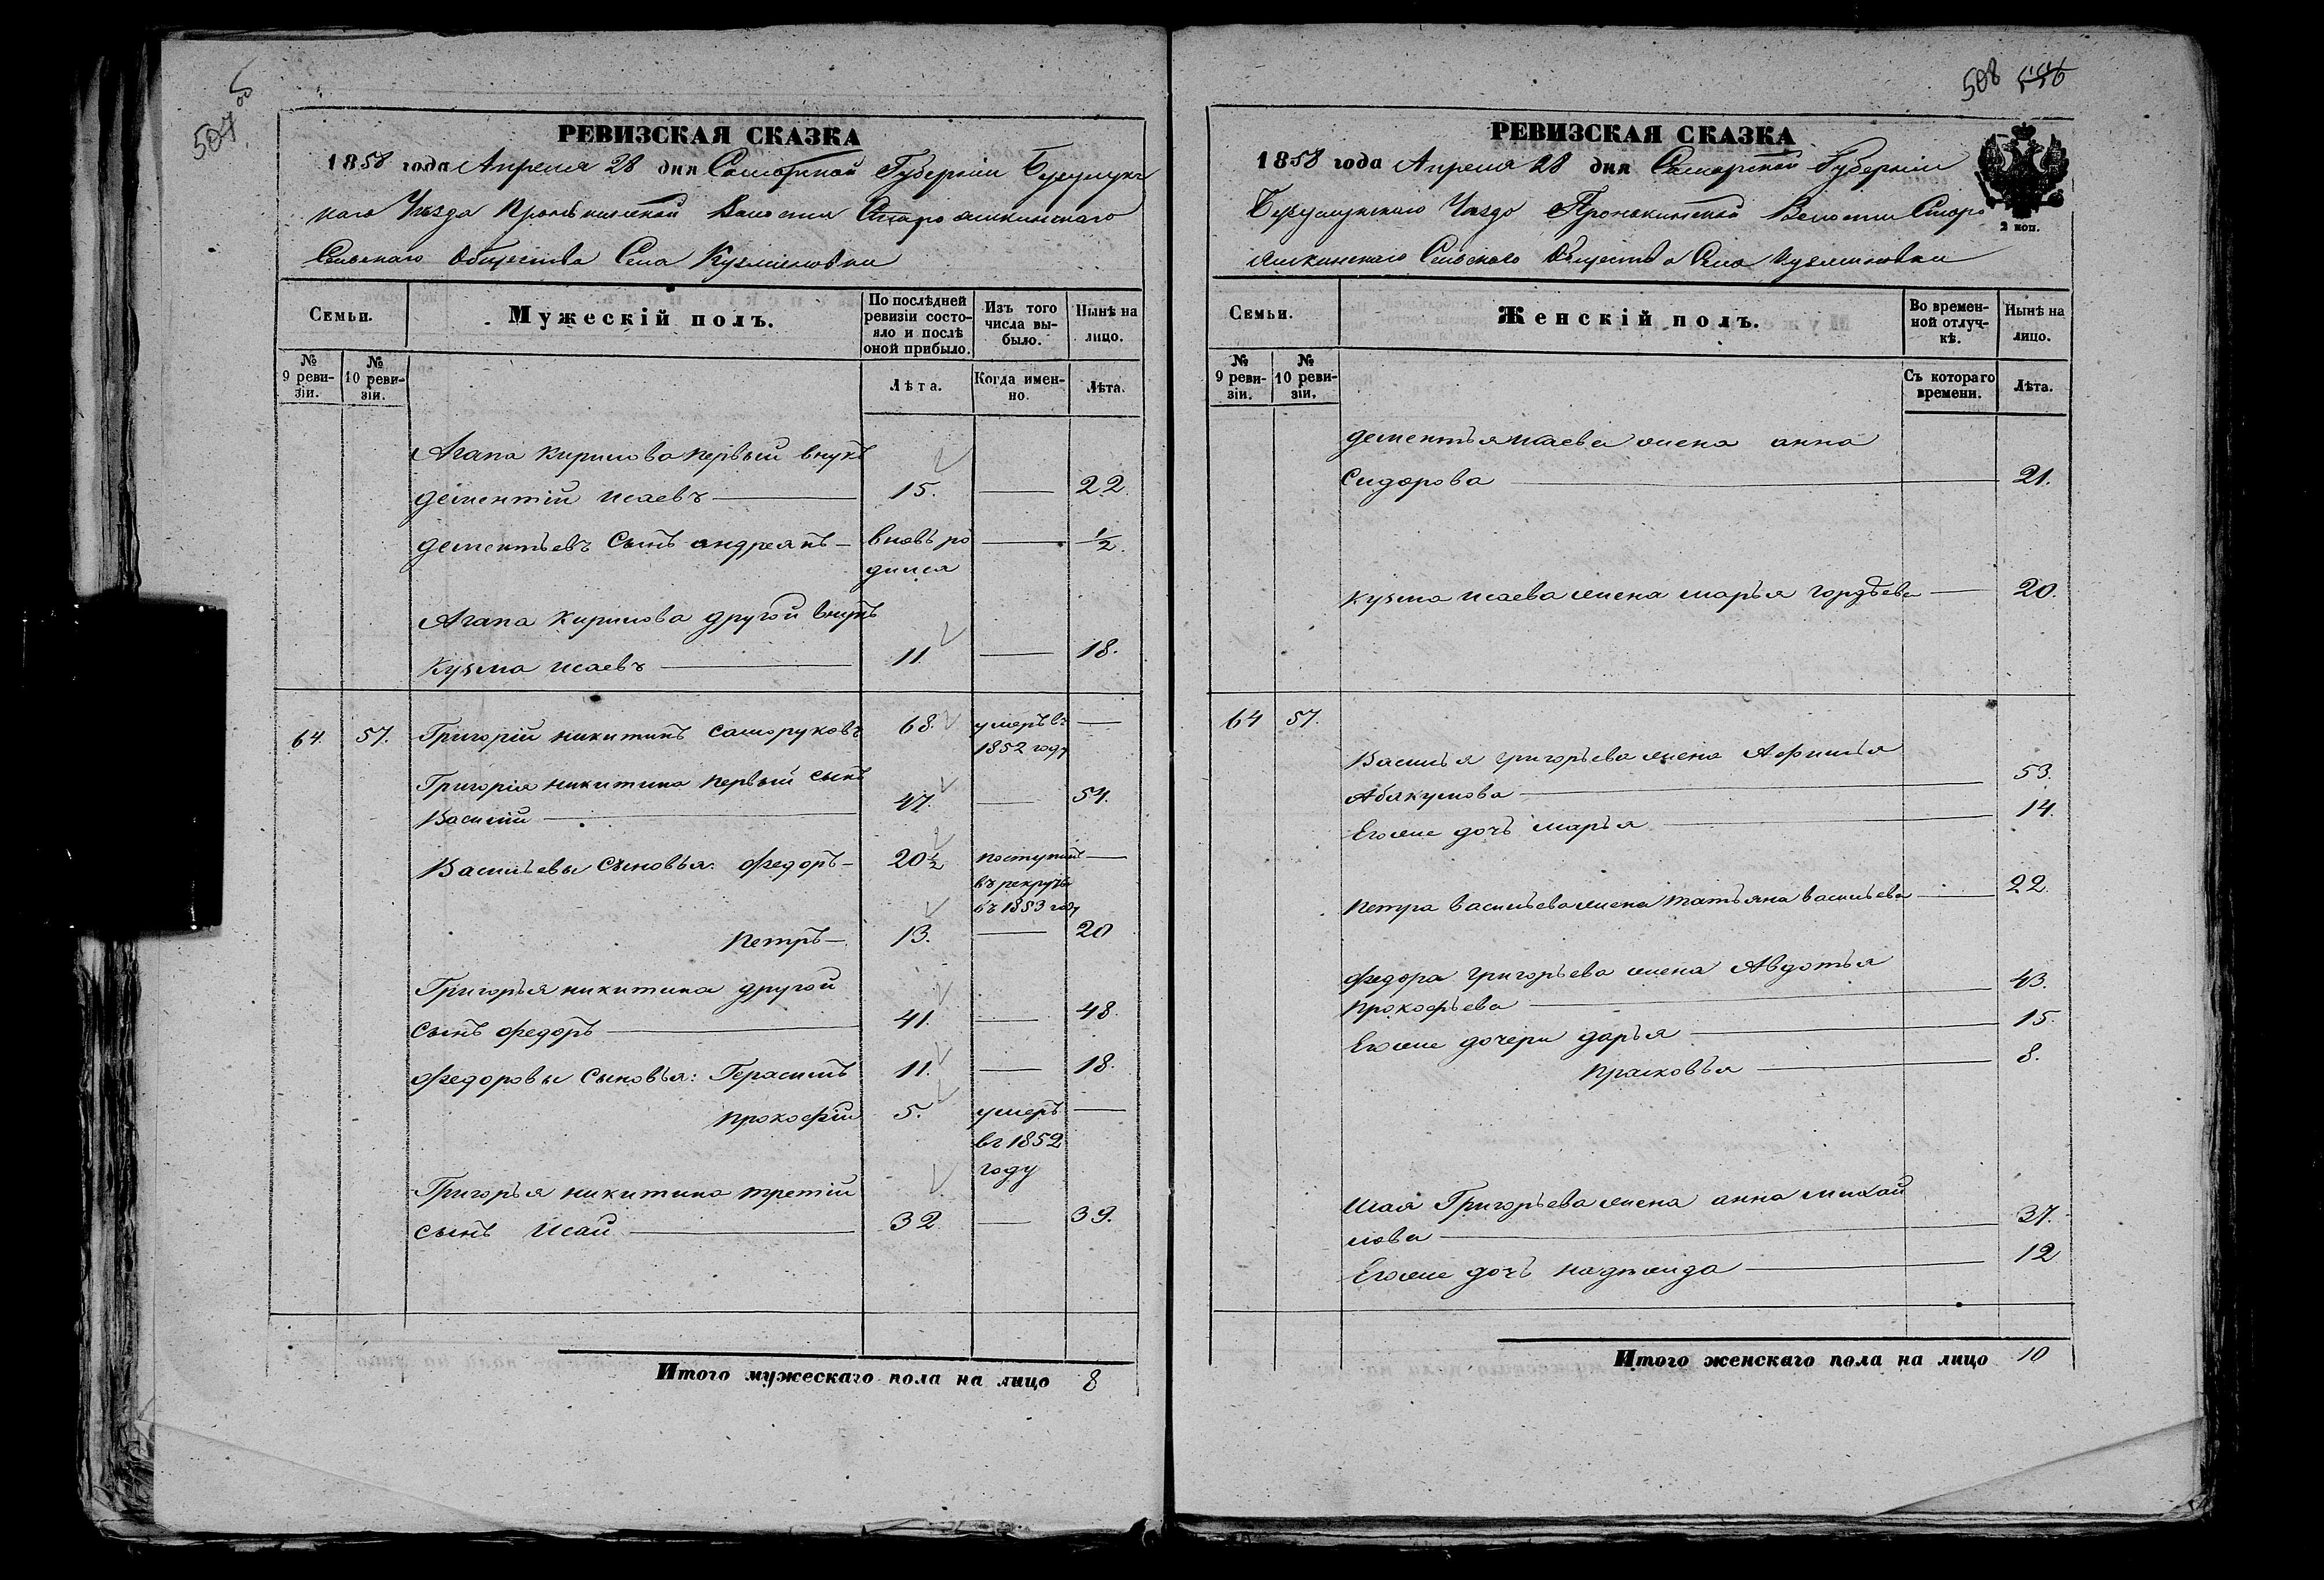 507 об
РЕВИЗСКАЯ СКАЗКА
1858 года Апреля 28 дня Самарской Губернiи Бузулук
каго Уѣзда Пронькинской Волости Староашкинскаго
Сельскаго Общества Села Кузминовки
Семьи.
Мужескій полъ.
По послѣдней
ревизіи состо-
яло и послѣ
оной прибыло.
Изъ того
числа вы-
было.
Нынѣ на
лицо.
№
9 реви-
зіи.
№
10 реви-
зіи.
Лѣта.
Когда имен-
но.
Лѣта.
Агапа Кирилова первый внукъ
дементій исаевъ — 15. — 22.
дементьевъ сынъ андреянъ — вновь ро — 1/2.
дился
Агапа Кирилова другой внукъ
Кузма исаевъ — 11. — 18.
64. 57. Григорій никитинъ саморуковъ 68. умеръ въ —
1852 году
Григорія никитина первый сынъ
Василий — 47. — 54.
Васильевы сыновья: федоръ — 20 1/2 поступилъ —
въ рекруты
въ 1853 году
петръ — 13. — 20
Григорья никитина другой
сынъ федоръ — 41. — 48.
федоровы сыновья: Герасимъ 11. — 18.
прокофій 5. умеръ —
въ 1852
году
Григорья никитина третій
сынъ Исай — 32. — 39.
Итого мужескаго пола на лицо 8
508 556
РЕВИЗСКАЯ СКАЗКА
1858 года Апреля 28 дня Самарской Губерніи
2 коп.
Бузулукскаго Уѣзда Пронькинской Волости Старо
ашкинскаго Сельскаго Общества Села Кузминовки
Семьи.
Женскій полъ.
Во времен-
ной отлуч-
кѣ.
Нынѣ на
лицо.
№
9 реви-
зіи.
№
10 реви-
зіи.
Съ котораго
времени.
Лѣта.
дементья исаева жена анна
Сидорова — 21.
Кузма исаева жена марья гордѣева — 20.
64 57.
Василья григорьева жена Афимья
Абакумова — 53.
Егоже дочь марья — 14.
петра васильева жена татьяна васильева — 22.
федора григорьева жена Авдотья
прокофьева — 43.
Егоже дочери дарья — 15.
прасковья — 8.
Исая Григорьева жена анна михай
лова — 37.
Егоже дочь надежда — 12
Итого женскаго пола на лицо 10